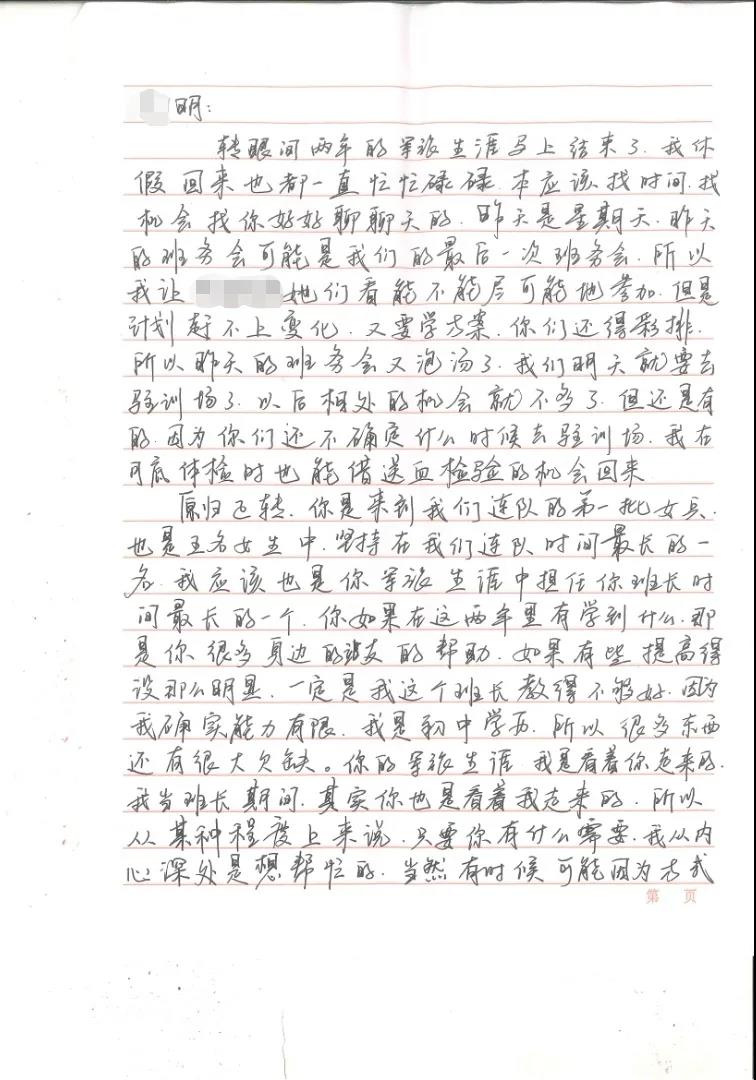 明：
转眼间两年的军旅生涯马上结束了.我休
假回来也都一直忙忙碌碌.本应该找时间.找
机会找你好好聊聊天的.昨天是星期天.昨天
的班务会可能是我们的最后一次班务会.所以
我让 她们看能不能尽可能地参加.但是
计划赶不上变化.又要学方案.你们还得彩排.
所以昨天的班务会又泡汤了.我们明天就要去
驻训场了.以后相处的机会就不多了.但还是有
的.因为你们还不确定什么时候去驻训场.我在
可底体检时也能借送血检验的机会回来
原归正转.你是来到我们连队的第一批女兵.
也是五名女生中.坚持在我们连队时间最长的一
名.我应该也是你军旅生涯中担任你班长时
间最长的一个.你如果在这两年里有学到什么.那
是你很多身边的战友的帮助.如果有些提高得
没那么明显.一定是我这个班长教得不够好.因为
我确实能力有限.我是初中学历.所以很多东西
还有很大欠缺。你的军旅生涯.我是看着你走来的.
我当班长期间.其实你也是看着我走来的.所以
从某种程度上来说.只要你有什么需要.我从内
心深处是想帮忙的.当然有时候可能因为方式
第 页